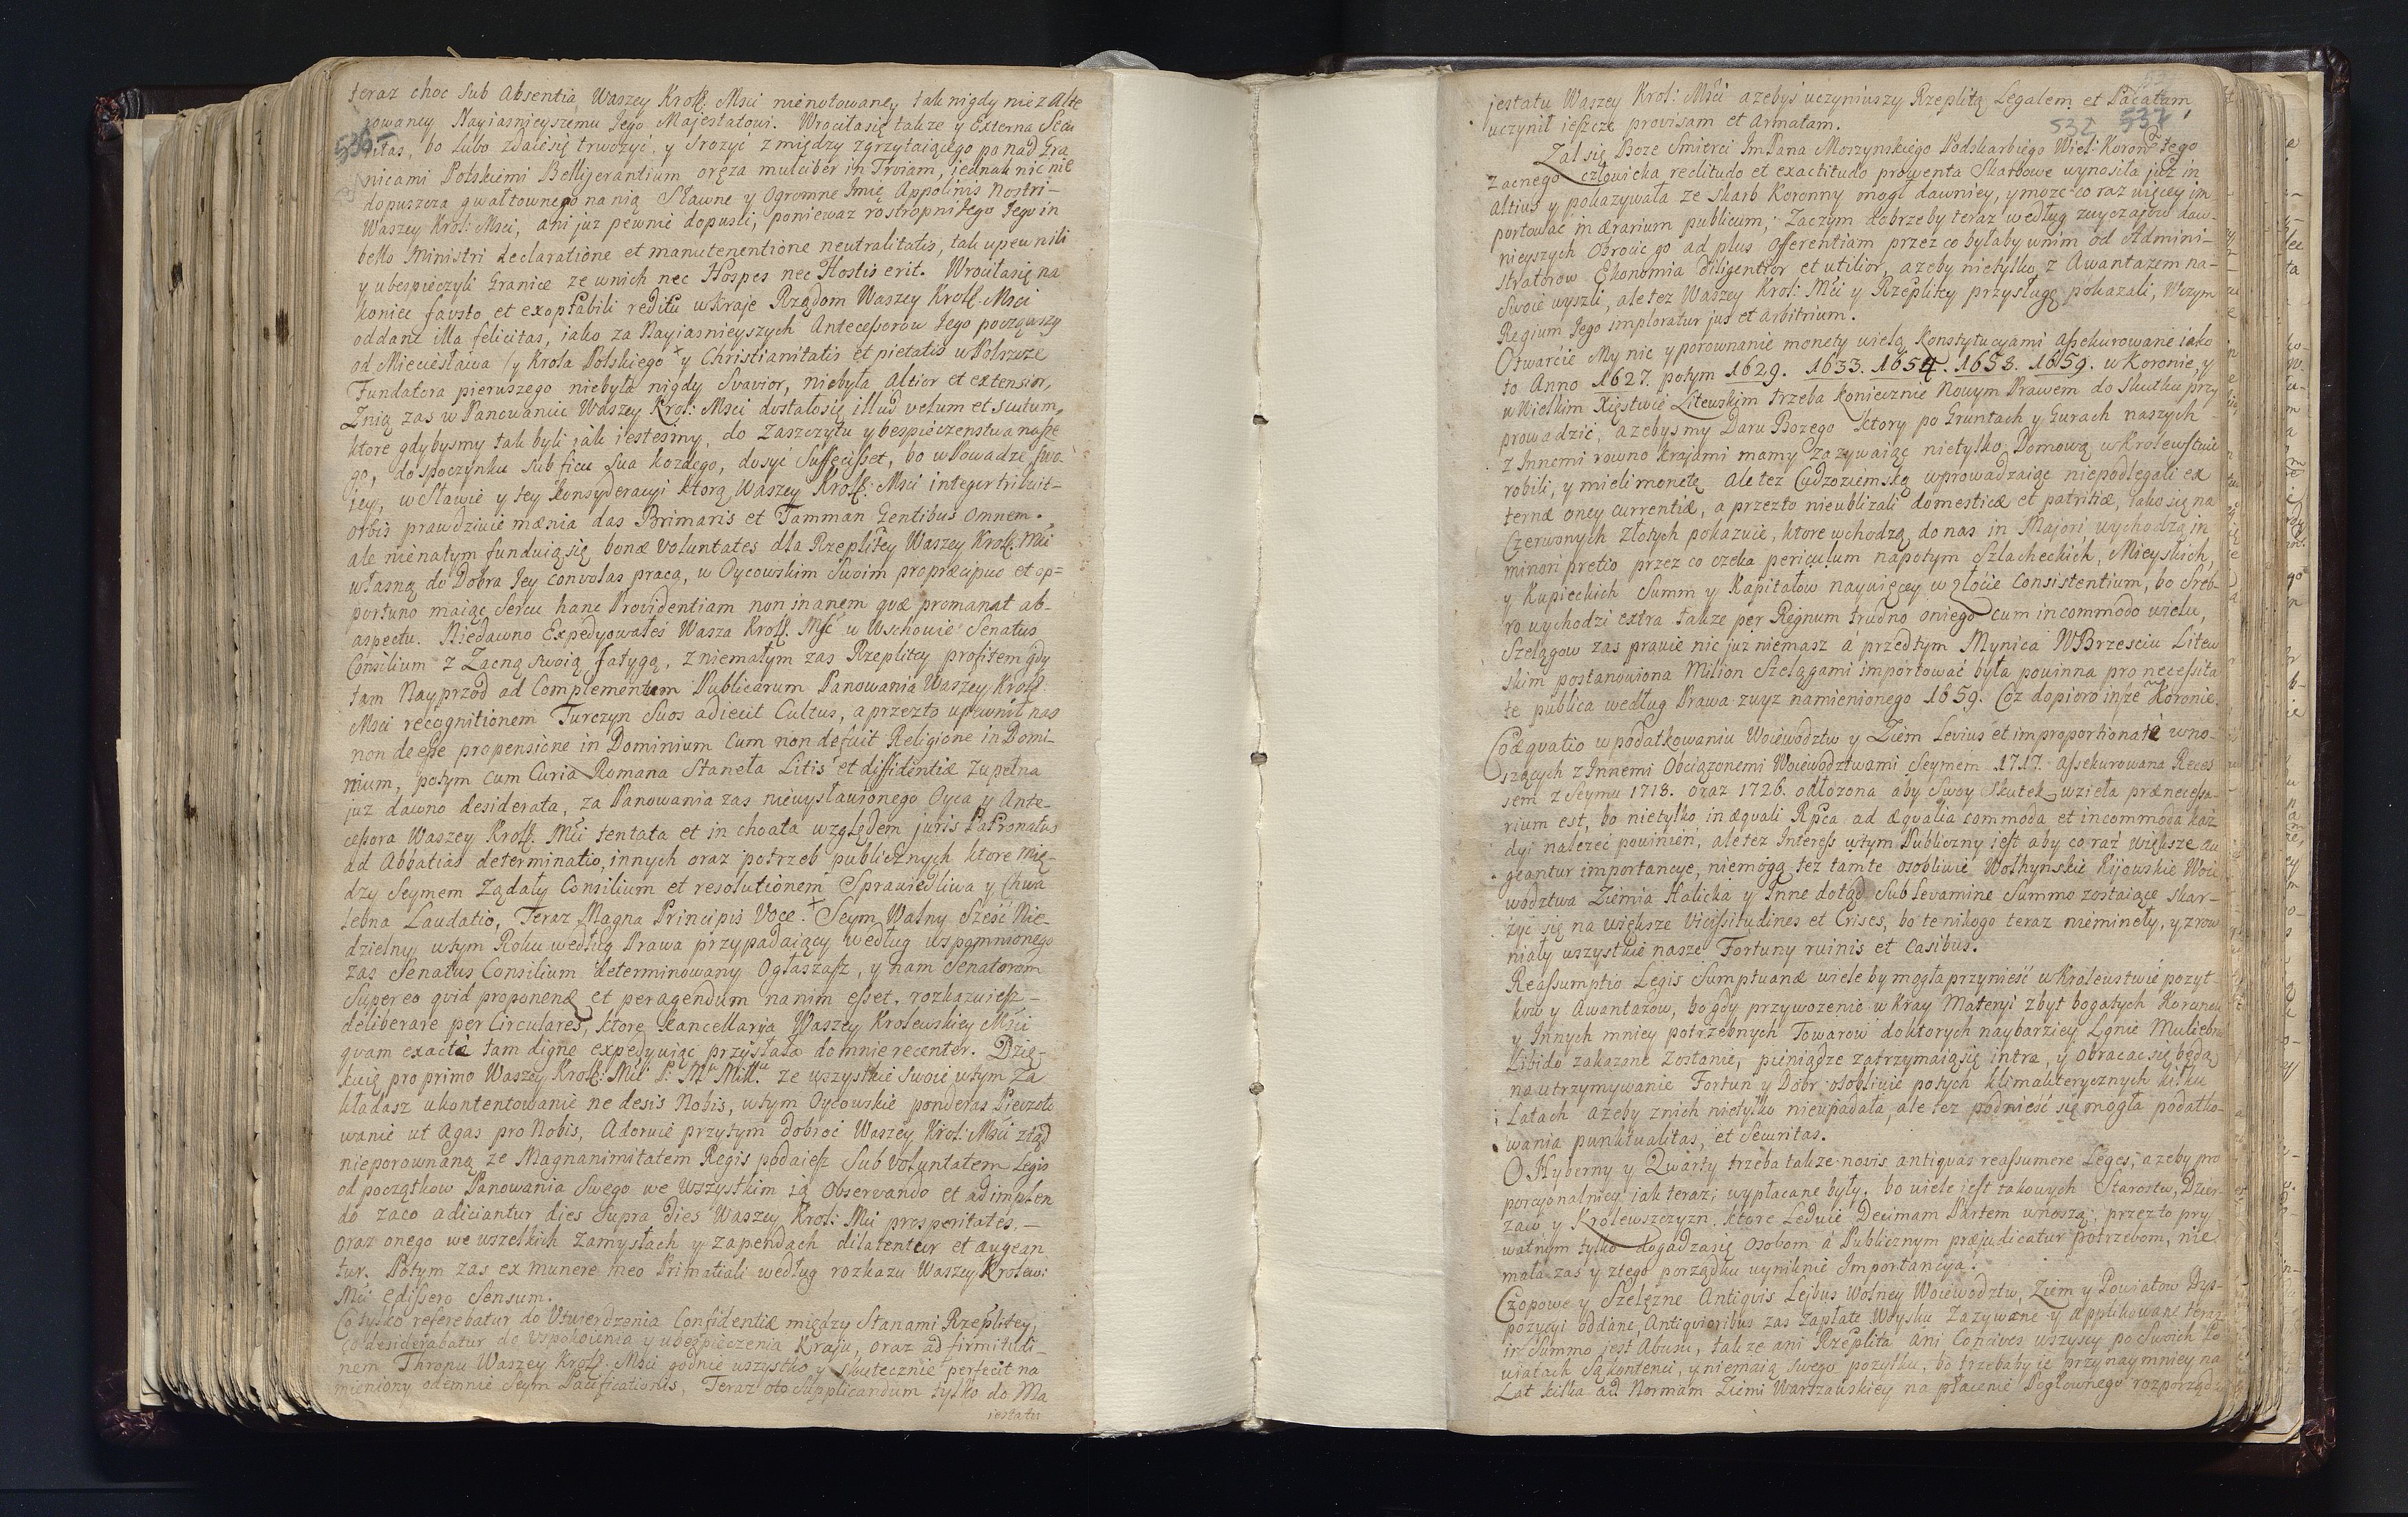 teraz choc Sub Absentia Waszey Kroll: Msci nienotowaney tak nigdy nie z Alte
rowaney Nayiasnieyszemu Jego Majestatowi. Wrociłasię takze y Externa Secu
536
ritas, bo lubo zdałesię trwozyć, y srozyć z między zgrzytaiącego ponad Gra
nicami Polskiemi Bellijerantium oręza mulciber in Troiam, jednak nic nie
dopuszcza gwałtownego na nią Sławne y Ogromne Imię Appolinis Nostri-
Waszey Krol: Msci, ani juz pewnie dopuści, poniewaz rostropni Jego Jego in
bello Ministri declaratione et manutenentione neutralitatis, tak upewnili
y ubespieczyli Granice ze wnich nec Hospes nec Hostis erit. Wrociłasię na
koniec fausto et exoptabili reditu w Kraje Rządom Waszey Kroll. Msci
oddane illa felicitas, iako za Nayiasnieyszych Antecessorow Jego począwszy
od Miecisława /y Krola Polskiego y Christianitatis et pietatis w Polszcze
Fundatora pierwszego niebyła nigdy Svavior, niebyła Altior et extensior,
Znią zas w Panowaniu Waszey Krol: Msci dostałosię illud velum et scutum,
ktore gdybysmy tak byli jak iestesmy, do zaszczytu y bespieczenstwa nasze
go, do spoczynku sub ficu sua kozdego, dosyć suffecisset, bo w Powadze swo-
iey, w Sławie y tey konsyderacyi ktorą Waszey Kroll: Msci integer tribuit-
orbis prawdziwie mænia das Primaris et Tamman Gentibus Omnem.
ale nienatym funduią się bonæ voluntates dla Rzeplitey Waszey Kroll. Msci
własną do Dobra Jey convolas pracą, w Oycowskim Swoim propræcipuo et op=
portuno maiąc Sercu hanc Providentiam non inanem quæ promanat ab-
aspectu. Niedawno Expedyowałeś Wasza Kroll. Mść w Wschowie Senatus
Consilium z Zacną swoią fatygą, z niemałym zas Rzeplitey profitem gdy
tam Nayprzod ad Complementum Publicarum Panowania Waszey Kroll:
Msci recognitionem Turczyn Suos adiecit Cultus, a przezto upewnił nas
non deesse propensione in Dominium Cum non defuit Religione in Domi-
nium, potym cum Curia Romana Staneła Litis et diffidentiæ zupełna
juz dawno desiderata, za Panowania zas niewysławionego Oyca y Ante-
cessora Waszey Kroll. Msci tentata et in choata względem juris Patronatus
ad Abbatias determinatio, innych oraz potrzeb publicznych ktore mię-
dzy Seymem Ządały Consilium et resolutionem Sprawiedliwa y Chwa
lebna Laudatio, Teraz Magna Principis Voce. Seym Walny Sześć Nie-
dzielny wtym Roku według Prawa przypadaiący według wspomnionego
zas Senatus Consilium determinowany Ogłaszasz, y nam Senatorom
Super eo quid proponend et peragendum nanim esset, rozkazuiesz-
deliberare per Circulares, ktore kancellarya Waszey Krolewskiey Msci
quam exacte tam digne expedyuiąc przysłała do mnie recenter. Dzię-
kuię pro primo Waszey Kroll: Msci ze wszystkie swoie wtym Za
kładasz ukontentowanie ne desis Nobis, wtym Oycowskie ponderas Pieczoło
wanie ut Agas pro Nobis, Adoruie przytym dobroć Waszey Krol: Msci ztąd
nieporownaną ze Magnanimitatem Regis podaiesz Sub voluntatem Legis
od początkow Panowania Swego we wszystkim ią Observando et adimplen
do zaco adiciantur dies Supra dies Waszey Krol: Msci prosperitates.-
oraz onego we wszelkich Zamysłach y zapendach dilatentur et augean
tur. Potym zas ex munere meo Primatiali według rozkazu Waszey Krolew:
Msci Edissero Sensum.
Co tylko referebatur do Utwierdzenia Confidentiæ między Stanami Rzeplitey,
co desiderabatur do Uspokoienia y ubespieczenia Kraju, oraz ad firmitudi-
nem Thronu Waszey Kroll. Msci godnie wszystko y skutecznie perfecit na
mieniony odemnie Seym Pacificationis, Teraz oto Supplicandum tylko do Ma
iestatu
jestatu Waszey Krol: Msci azebyś uczyniwszy Rzeplitą Legalem et Pacatam,
532 537
uczynił ieszcze provisam et Armatam.
Zal się Boze Smierci ImPana Moszynskiego Podskarbiego Wiel: Koron: tego
zacnego człowieka reclitudo et exactitudo prowenta Skarbowe wynosiła juz in
altius y pokazywała ze skarb Koronny mogł dawniey, y moze coraz więcey im
portować in ærarium publicum; Zaczym dobrzeby teraz według zwyczajow daw-
nieyszych Obrocic go ad plus offerentiam przez co byłaby wnim od Admini-
stratorow Ekonomia diligentior et utilior, azeby nietylko z Awantazem na-
Swoie wyszli, ale tez Waszey Krol: Msci y Rzeplitey przysługę pokazali, Wczym
Regium Jego imploratur jus et Arbitrium.
Otwarcie Mynic y porownanie monety wielą Konstytucyami assekurowane iako
to Anno 1627. potym 1629. 1633. 1654. 1658. 1659. w Koronie, y
w Wielkim Xięstwie Litewskim trzeba koniecznie Nowym Prawem do Skutku przy
prowadzić, azebysmy Daru Bozego ktory po Gruntach y Gurach naszych
z Innemi rowno krajami mamy zazywaiąc nietylko Domową w Krolewstwie
robili, y mieli monetę ale tez Cudzoziemską wprowadzaiąc niepodlegali ex
ternæ oney currentiæ, a przezto nieublizali domesticæ et patritiæ, iako się na
Czerwonych Złotych pokazuie, ktore wchodzą do nas in Majori, wychodzą in
minori pretio przez co czeka periculum napotym Szlacheckich, Mieyskich,
y Kupieckich Summ y Kapitałow naywięcey w złocie Consistentium, bo Sreb-
ro wychodzi extra takze per Regnum trudno oniego cum incommodo wielu,
Szelągow zas prawie nic juz niemasz a przedtym Mynica W Brzesciu Litew
skim postanowiona Milion Szelągami importować była powinna pro necessita
te publica według Prawa zwyz namienionego 1659. Coz dopioro insze Koronie.
Coæquatio w podatkowaniu Woiewodztw y Ziem levius et improportionate wno-
szących z Innemi Obciązonemi Woiewodztwami Seymem 1717. assekurowana Reces
sem z Seymu 1718. oraz 1726. odłozona aby Swoy Skutek wzieła prænecessa-
rium est, bo nietylko in æquali Rpca ad æqualia commoda et incommoda kaz
dyi nalezeć powinien, ale tez Interess wtym Publiczny jest aby coraz większe au
geantur importancye, niemogą tez tamte osobliwie Wołhynskie Kijowskie Woie
wodztwa Ziemia Halicka y Inne dotąd Sub levamine Summo zostaiące skar-
żyć się na większe Vicissitudines et Crises, bo te nikogo teraz nieminęły, y zrow
niały wszystkie nasze Fortuny ruinis et casibus.
Reassumptio Legis Sumptuariæ wiele by mogła przynieść w Krolewstwie pozyt-
kow y Awantazow, bo gdy przywozenie w Kray Materyi zbyt bogatych Koronek
y Innych mniey potrzebnych Towarow do ktorych naybarziey Lgnie Muliebris
Libido zakazane Zostanie, pieniądze zatrzymaią się intra, y obracac się będą
na utrzymywanie Fortun y Dobr osobliwie potych klimakterycznych kilku
Latach azeby znich nietylko nieupadała, ale tez podnieść się mogła podatko-
wania punktualitas, et Securitas.
O Hyberny y Qwarty trzeba takze novis antiquas reassumere Leges, azeby pro
porcyonalniey iak teraz, wypłacane były, bo wiele jest takowych Starostw, Dzier-
zaw y Krolewszczyzn, ktore Ledwie Decimam Partem wnoszą, przezto pry
watnym tylko dogadzasię osobom a Publicznym præjudicatur potrzebom, nie
mała zas y złego porządku wyniknie Importancya.
Czopowe y Szelęzne Antiquis Legibus Wolney Woiewodztw, Ziem y Powiatow Dys-
pozycyi oddane, Antiquioribus zas Zapłate Woysku Zazywane y Applikowane teraz
in Summo jest Abusu, takze ani Rzeplita ani Concives wszyscy po Swoich Po
wiatach Są kontenci, y niemaią swego pozytku, bo trzebaby ie przynaymniey na
Lat kilka ad Normam Ziemi Warszawskiey na płacenie Pogłownego rozporządz